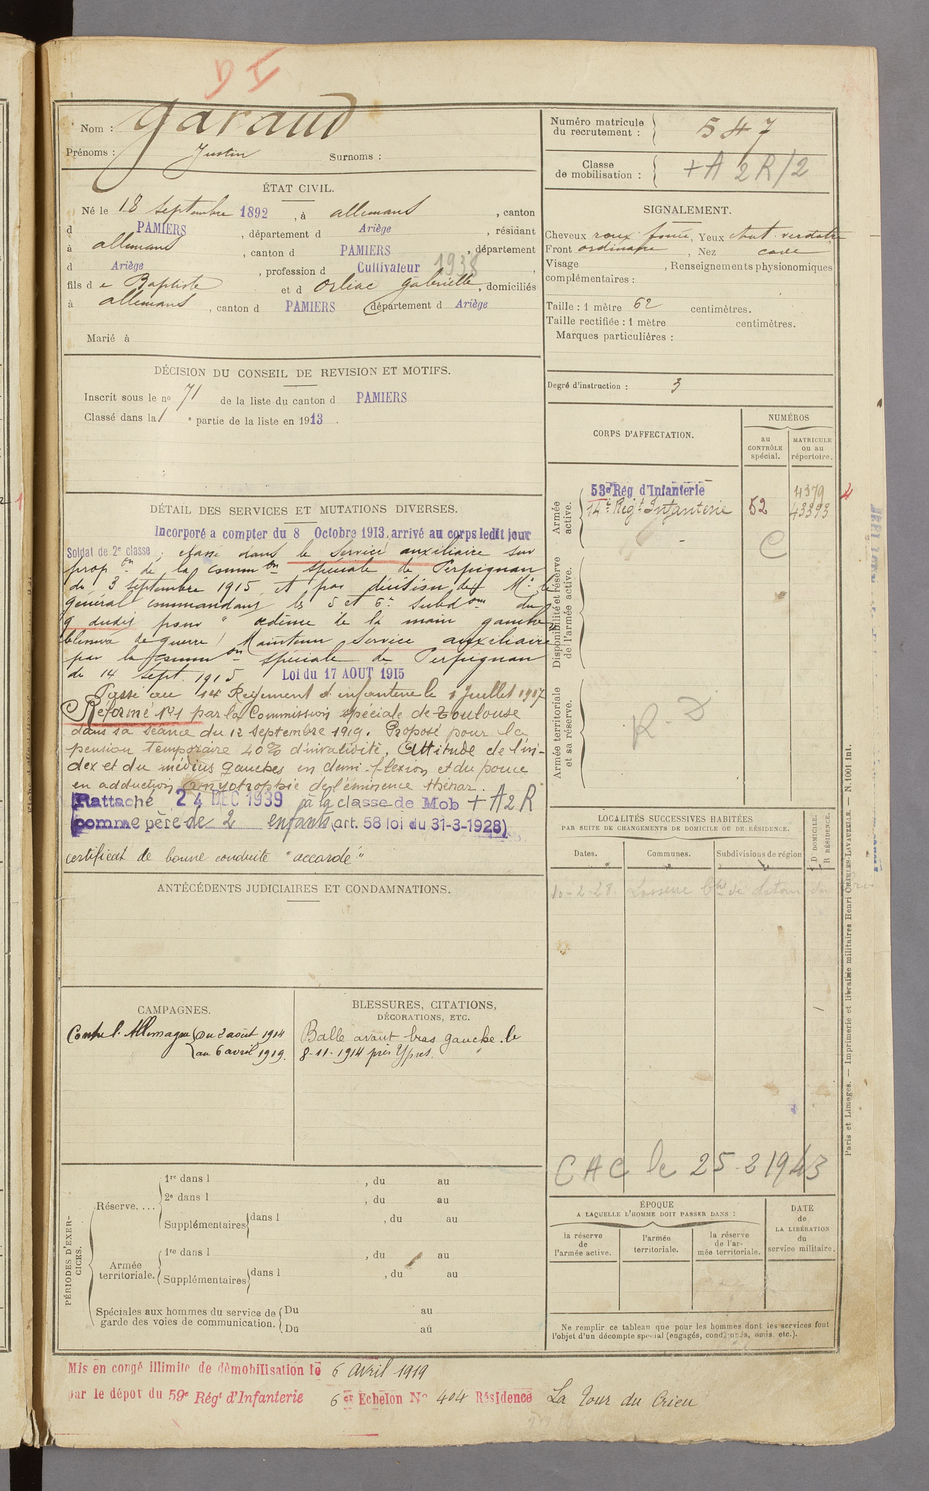 D I
Nom : Garaud
Prénoms : Justin Surnoms :
ÉTAT CIVIL.
Né le 18 septembre 1892, à allemans, canton
d PAMIERS, département d Ariège, résidant
à allemans, canton d PAMIERS, département
d Ariège, profession d Cultivateur 1938,
fils de Baptiste et d Orliac Gabrielle, domiciliés
à allemans, canton d PAMIERS département d Ariège
Marié à
DÉCISION DU CONSEIL DE REVISION ET MOTIFS.
Inscrit sous le nº 71 de la liste du canton d PAMIERS
Classé dans la 1e partie de la liste en 1913.
DÉTAIL DES SERVICES ET MUTATIONS DIVERSES.
Incorporé a compter du 8 Octobre 1913, arrivé au corps ledit jour
Soldat de 2e classe ; classé dans le service auxiliaire sur
propon de la common spéciale de Perpignan
du 3 septembre 1915 et par décision de Mr le
Général commandant les 5 et 6e Subdons du
q dudit pour " œdème de la main gauche
blessure de guerre) Maintenu service auxiliaire
par la common spéciale de Perpignan
du 14 sept. 1915 Loi du 17 AOUT 1915
Passé au 14e Régiment d'infanterie le 1 Juillet 1917
Réformé Nº1 par la Commission spéciale de Toulouse
dans sa séance du 12 septembre 1919. Proposé pour la
pension temporaire 40% d'invalidité, Attitude de l'in-
dex et du médius gauches en demi-flexion et du pouce
en adduction amyotrophie de l'éminence thénar.
Rattaché 24 DEC 1939 à la classe de Mob + A2R
comme père de 2 enfants (art. 58 loi du 31-3-1928)
certificat de bonne conduite "accordé"
ANTÉCÉDENTS JUDICIAIRES ET CONDAMNATIONS.
CAMPAGNES.
Contre l'Allemagne (du 2 août 1914
au 6 avril 1919.
BLESSURES, CITATIONS,
DÉCORATIONS, ETC.
Balle avant bras gauche le
8-11-1914 près Ypres.
PÉRIODES D'EXERCICES.
Réserve....
1re dans l , du au
2e dans l , du au
Supplémentaires dans l , du au
Armée territoriale.
1re dans l , du au
Supplémentaires dans l , du au
Spéciales aux hommes du service de garde des voies de communication.
Du au
Du au
Numéro matricule
du recrutement : 547
Classe
de mobilisation : +A 2R/2
SIGNALEMENT.
Cheveux roux foncé, Yeux chat. verdatre
Front ordinaire, Nez cave
Visage , Renseignements physionomiques
complémentaires :
Taille : 1 mètre 62 centimètres.
Taille rectifiée : 1 mètre centimètres.
Marques particulières :
Degré d'instruction : 3
CORPS D'AFFECTATION.
NUMÉROS
AU CONTRÔLE spécial.
MATRICULE OU AU répertoire.
Armée active.
53e Rég d'Infanterie 4379
14e Régt Infanterie 52 43393
C
Disponibilité et réserve de l'armée active.
Armée territoriale et sa réserve.
R. D
LOCALITÉS SUCCESSIVES HABITÉES
PAR SUITE DE CHANGEMENTS DE DOMICILE OU DE RÉSIDENCE.
Dates. Communes. Subdivisions de région
D DOMICILE.
R RÉSIDENCE.
10-2-28
CAC le 25.2 1943
ÉPOQUE
A LAQUELLE L'HOMME DOIT PASSER DANS :
la réserve de l'armée active.
l'armée territoriale.
la réserve de l'armée territoriale.
DATE de LA LIBÉRATION du service militaire.
Ne remplir ce tableau que pour les hommes dont les services font
l'objet d'un décompte spécial (engagés, condamnés, omis, etc.).
Paris et Limoges. — Imprimerie et librairie militaires Henri CHARLES-LAVAUZELLE. — N. 1001 int.
Mis en congé illimité de démobilisation le 6 avril 1919
par le dépot du 59e Régt d'Infanterie 6er Echelon Nº 404 Résidence La Tour du Crieu